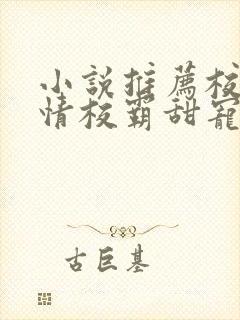 小説推薦校
情校霸甜寵
古巨基